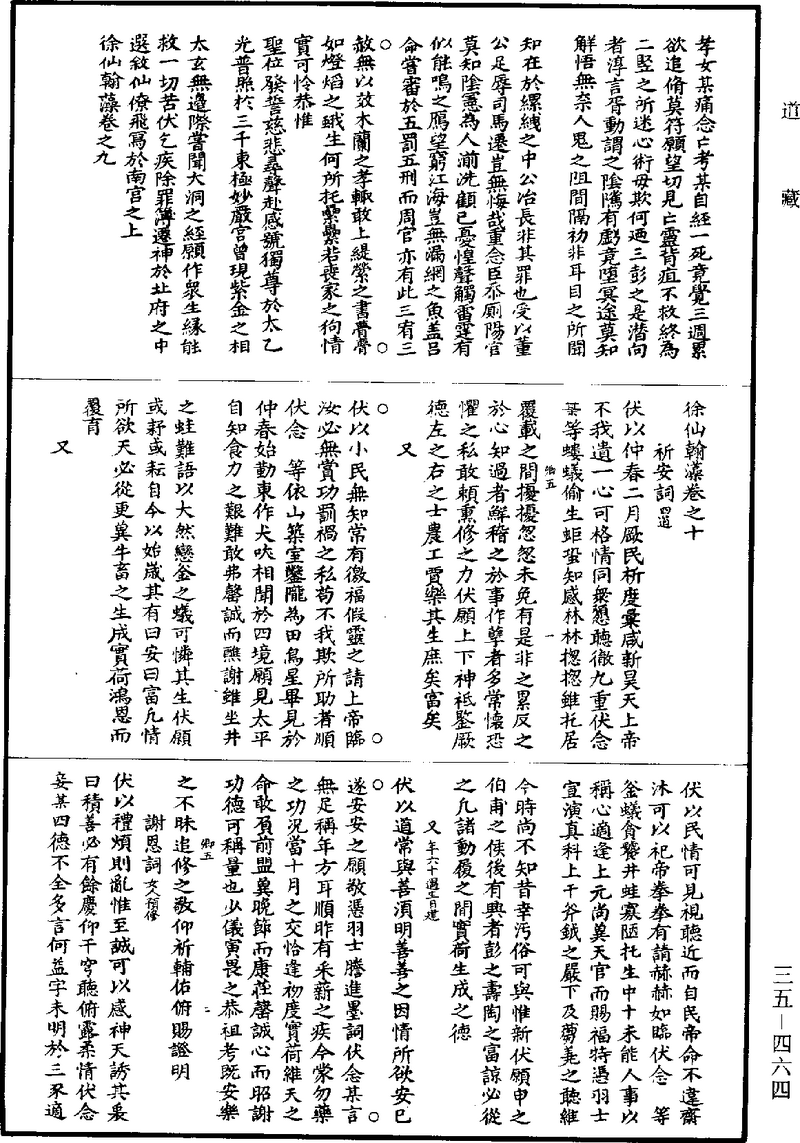 道藏
孝女某痛念亡考某自經一死竟覺三週累
欲追脩莫符願望切見亡靈背疽不救終為
二竪之所迷心術毋欺何迺三彭之是潜向
者淳言胥動謂之陰隲有虧竟墮冥途莫知
解悟無奈人鬼之阻間隔初非耳目之所聞
知在於縲絏之中公冶長非其罪也受以薰
公足辱司馬遷豈無悔哉重念臣忝厠陽官
莫知陰惡為人湔洗顧已憂惶聲觸雷霆有
似能鳴之鴈望窮江海豈無漏網之魚盖吕
命嘗審於五罰五刑而周官亦有此三宥三
赦無以效木蘭之孝輙敢上緹縈之書瞢瞢
如燈焰之蛾生何所托纍纍若喪家之狗情
實可怜恭惟
聖位發誓慈悲尋聲赴感號獨尊於太乙
光普照於三千東極妙嚴宫曾現紫金之相
太玄無邉際嘗聞大洞之經願作衆生緣能
救一切苦伏乞疾除罪簿遷神於北府之中
選敘仙僚飛寫於南宫之上
徐仙翰藻卷之九
徐仙翰藻卷之十
祈安詞 四道
伏以仲春二月厥民析度彙咸新昊天上帝
不我遺一心可格情同衆懇聽徹九重伏念
某等螻蟻偷生蚷蛩知感林林揔揔雖托居
覆載之間擾擾怱怱未免有是非之累反之
於心知過者鮮稽之於事作孽者多常懷恐
懼之私敢頼熏修之力伏願上下神祇鑒厥
德左之右之士農工賈樂其生庶矣富矣
又
伏以小民無知常有徼福假靈之請上帝臨
汝必無賞功罰禍之私苟不我欺所助者順
伏念 等依山築室鑿隴為田鳥星畢見於
仲春始勤東作犬吠相聞於四境願見太平
自知食力之艱難敢弗馨誠而醮謝雖坐井
之蛙難語以大然戀釜之蟻可憐其生伏願
或耔或耘自今以始歲其有曰安曰富凡情
所欲天必從更冀牛畜之生成實荷鴻恩而
覆育
又
伏以民情可見視聽近而自民帝命不違齋
沐可以祀帝拳拳有請赫赫如臨伏念 等
釜蟻貪饕井蛙寡陋托生中十未能人事以
稱心適逢上元尚冀天官而賜福特憑羽士
宣演真科上干斧鉞之嚴下及蒭蕘之聽維
今時尚不知昔幸污俗可與惟新伏願申之
伯甫之侯後有興者彭之壽陶之富諒必從
之凡諸動履之間實荷生成之德
又
伏以道常與善須明善善之因情所欲安已
遂安安之願敬憑羽士騰進墨詞伏念某言
無足稱年方耳順昨有釆薪之疾今蒙勿藥
之功況當十月之交恰逢初度實荷維天之
命敢負前盟冀晚節而康荘馨誠心而昭謝
功德可稱量也少儀寅畏之恭祖考既安樂
之不昧追修之敬仰祈輔佑俯賜證明
謝恩詞 女人預修
伏以禮煩則亂惟至誠可以感神天誘其衷
曰積善必有餘慶仰干穹聽俯露柔情伏念
妾某四德不全多言何益字未明於三豕適
三五—四六四